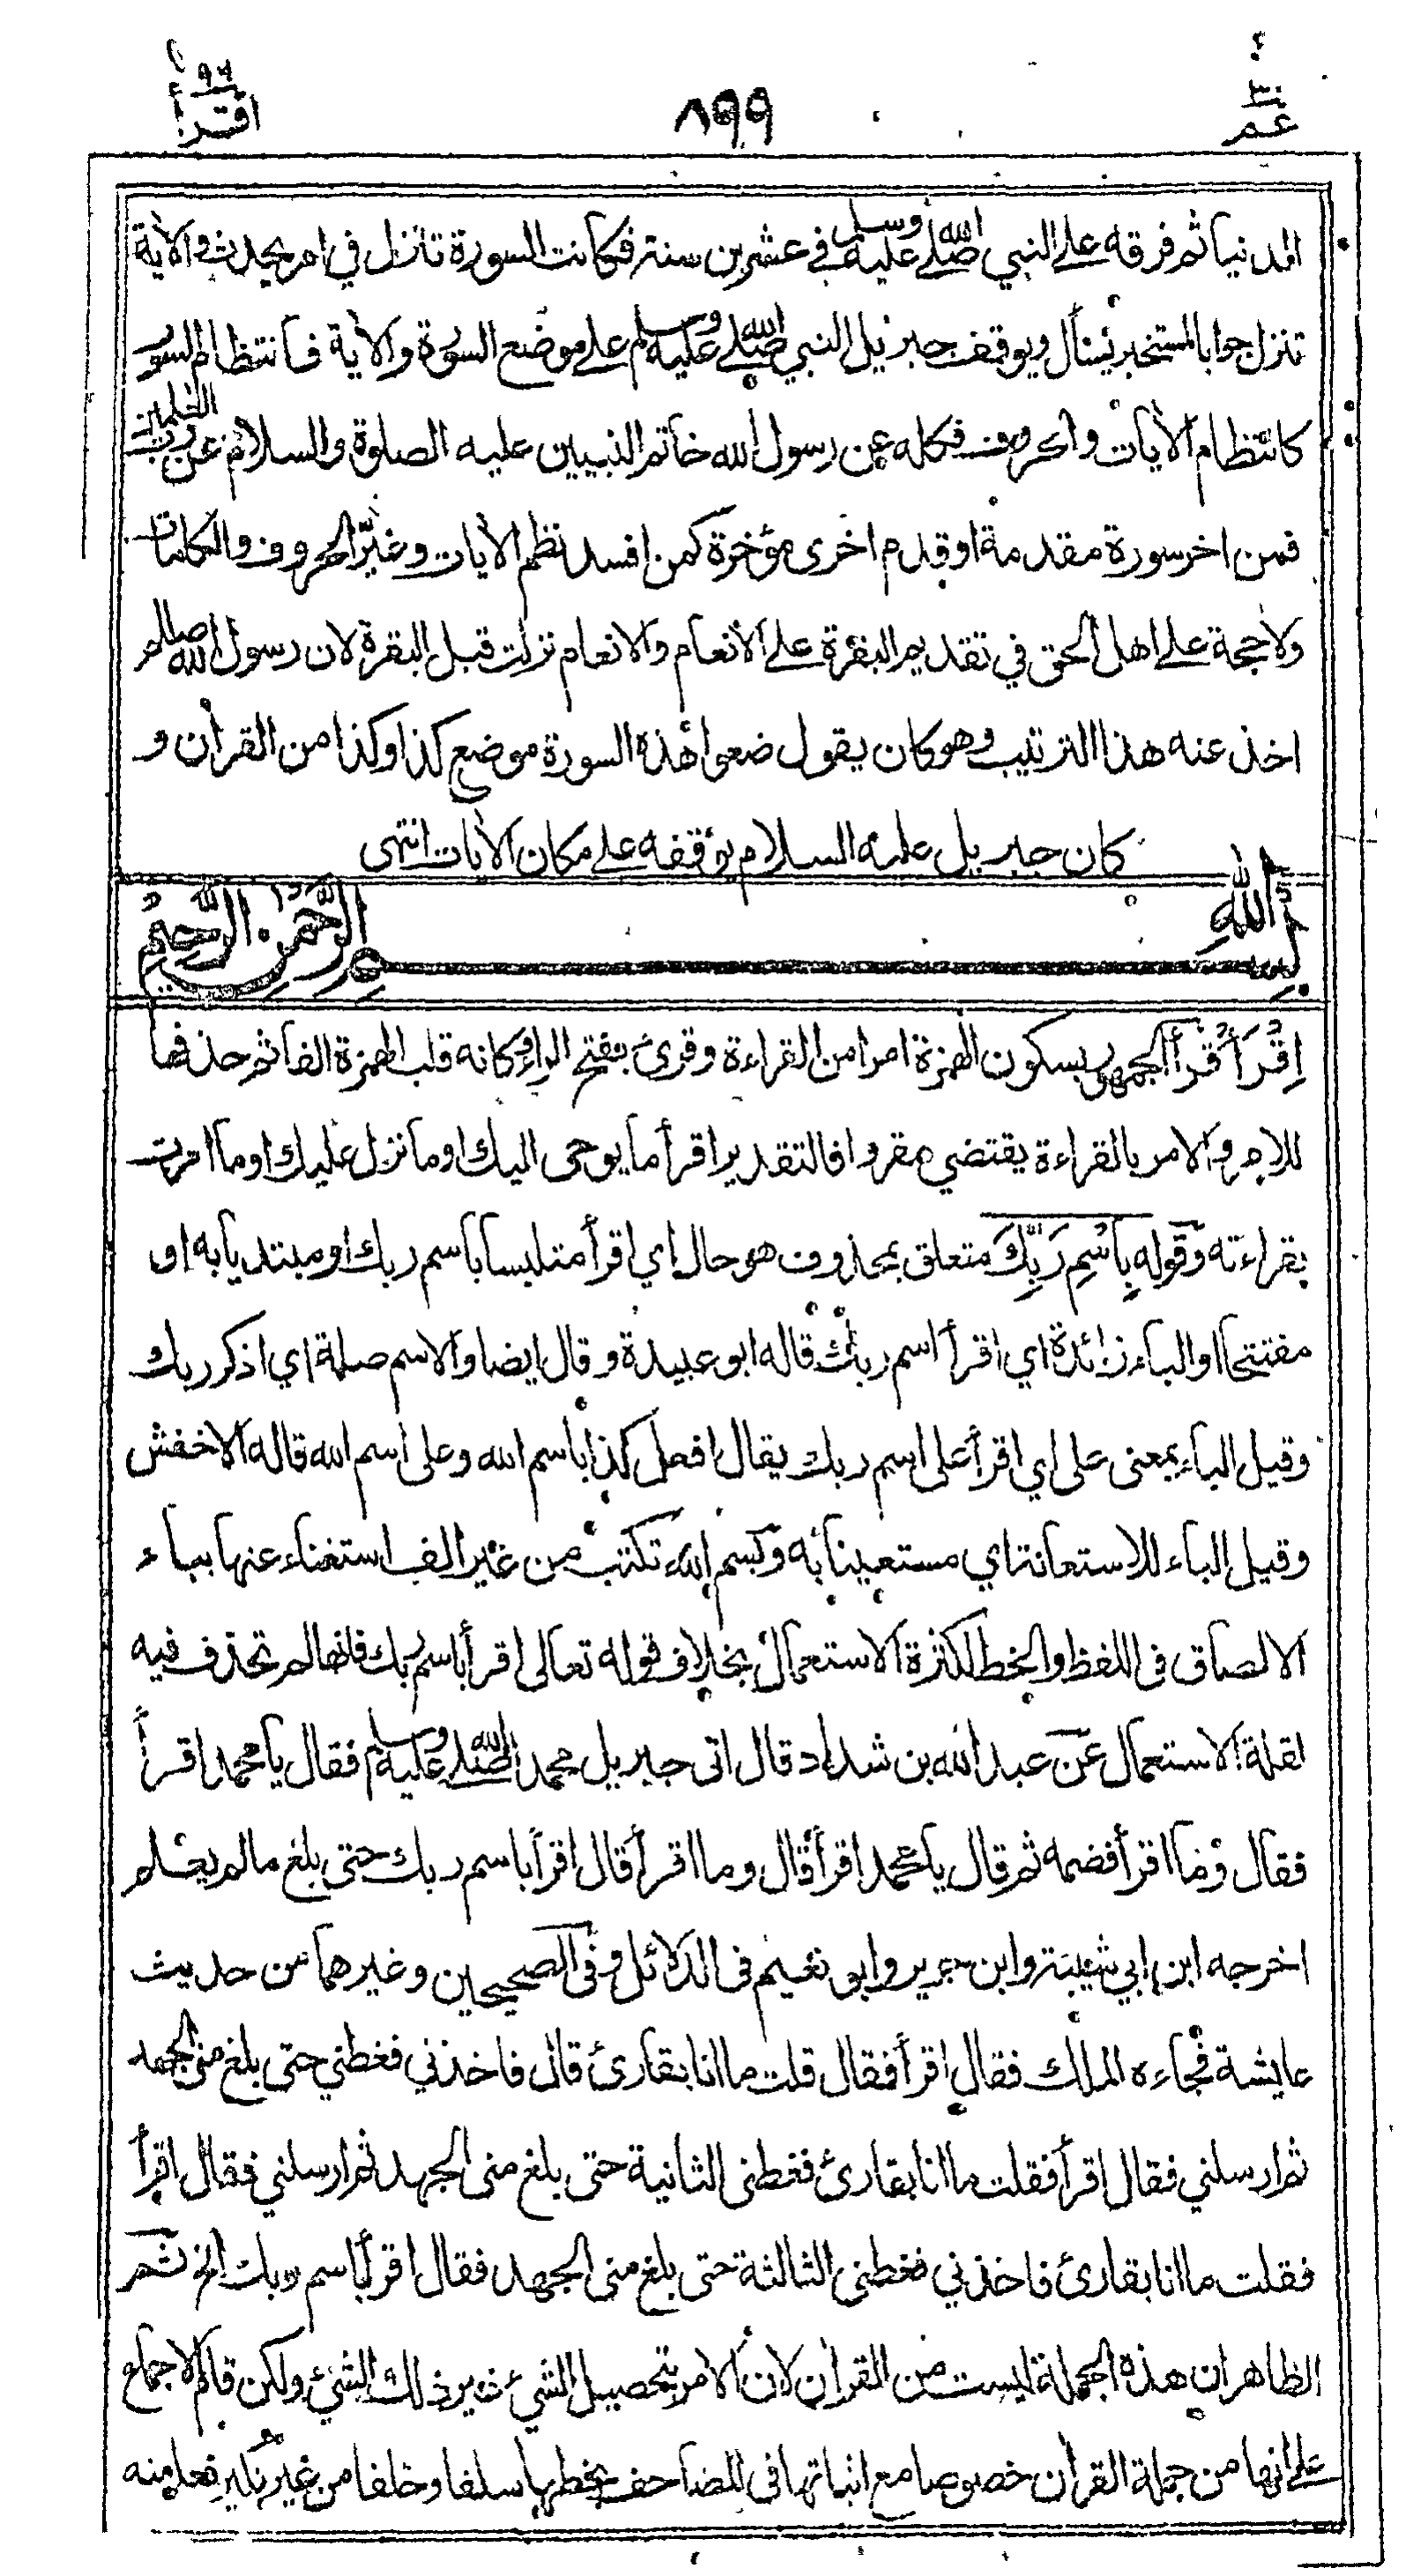 عم ٣٠
٨٩٩
اقرأ ٩٦
الدنيا ثم فرقه على النبي صلى الله عليه وسلم في عشرين سنة فكانت السورة تنزل في امر يحدث والآية
تنزل جوابا لمستخبر يسأل ويوقف جبريل النبي صلى الله عليه وسلم على موضع السورة والآية فانتظام السور
كانتظام الآيات والحروف فكله عن رسول الله خاتم النبيين عليه الصلوة والسلام عن رب العلمين
فمن اخر سورة مقدمة او قدم اخرى مؤخرة كمن افسد نظم الآيات وغيّر الحروف والكلمات
ولا حجة على اهل الحق في تقديم البقرة على الانعام والانعام نزلت قبل البقرة لان رسول الله صللم
اخذ عنه هذا الترتيب وهو كان يقول ضعوا هذه السورة موضع كذا وكذا من القرآن و
كان جبريل عليه السلام يوقفه على مكان الآيات انتهى
بِسْمِ اللهِ الرَّحْمٰنِ الرَّحِيْمِ
اِقْرَأْ قرأ الجمهور بسكون الهمزة امرا من القراءة وقرئ بفتح الراء وكانه قلب الهمزة الفا ثم حذفها
للامر والامر بالقراءة يقتضي مقروا فالتقدير اقرأ ما يوحى اليك او ما نزل عليك او ما امرت
بقراءته وقوله بِاسْمِ رَبِّكَ متعلق بمحذوف هو حال اي اقرأ متلبسا باسم ربك او مبتديا به او
مفتتحا او الباء زائدة اي اقرأ اسم ربك قاله ابو عبيدة وقال ايضا والاسم صلة اي اذكر ربك
وقيل الباء بمعنى على اي اقرأ على اسم ربك يقال افعل كذا باسم الله وعلى اسم الله قاله الاخفش
وقيل الباء للاستعانة اي مستعينا به وبسم الله تكتب من غير الف استغناء عنها بباء
الالصاق فى اللفظ والخط لكثرة الاستعمال بخلاف قوله تعالى اقرأ باسم ربك فانها لم تحذف فيه
لقلة الاستعمال عن عبد الله بن شداد قال اتى جبريل محمدا صلى الله عليه وسلم فقال يا محمد اقرأ
فقال وما اقرأ فضمه ثم قال يا محمد اقرأ قال وما اقرأ قال اقرأ باسم ربك حتى بلغ ما لم يعلم
اخرجه ابن ابي شيبة وابن جرير وابو نعيم فى الدلائل وفى الصحيحين وغيرهما من حديث
عايشة فجاءه الملك فقال اقرأ فقال قلت ما انا بقارئ قال فاخذني فغطني حتى بلغ مني الجهد
ثم ارسلني فقال اقرأ فقلت ما انا بقارئ فغطنى الثانية حتى بلغ منى الجهد ثم ارسلني فقال اقرأ
فقلت ما انا بقارئ فاخذني فغطنى الثالثة حتى بلغ منى الجهد فقال اقرأ باسم ربك الخ ثم
الظاهر ان هذه الجملة ليست من القرآن لان الامر بتحصيل الشيء غير ذلك الشيء ولكن قام الاجماع
على انها من جملة القرآن خصوصا مع اثباتها فى المصاحف بخطها سلفا وخلفا من غير نكير فعلم منه